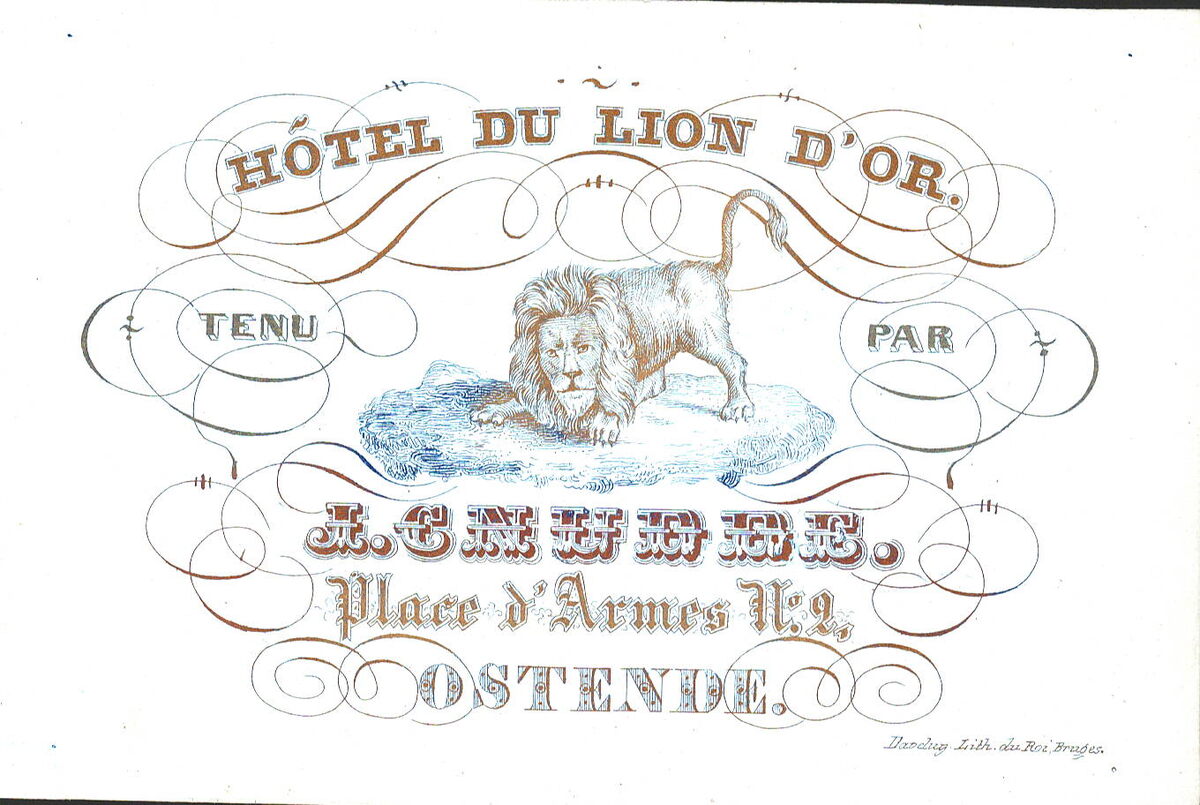 HÔTEL DU LION D'OR.
TENU PAR
J. CNUDDE.
Place d'Armes No. 2,
OSTENDE.
Daveluy Lith. du Roi, Bruges.